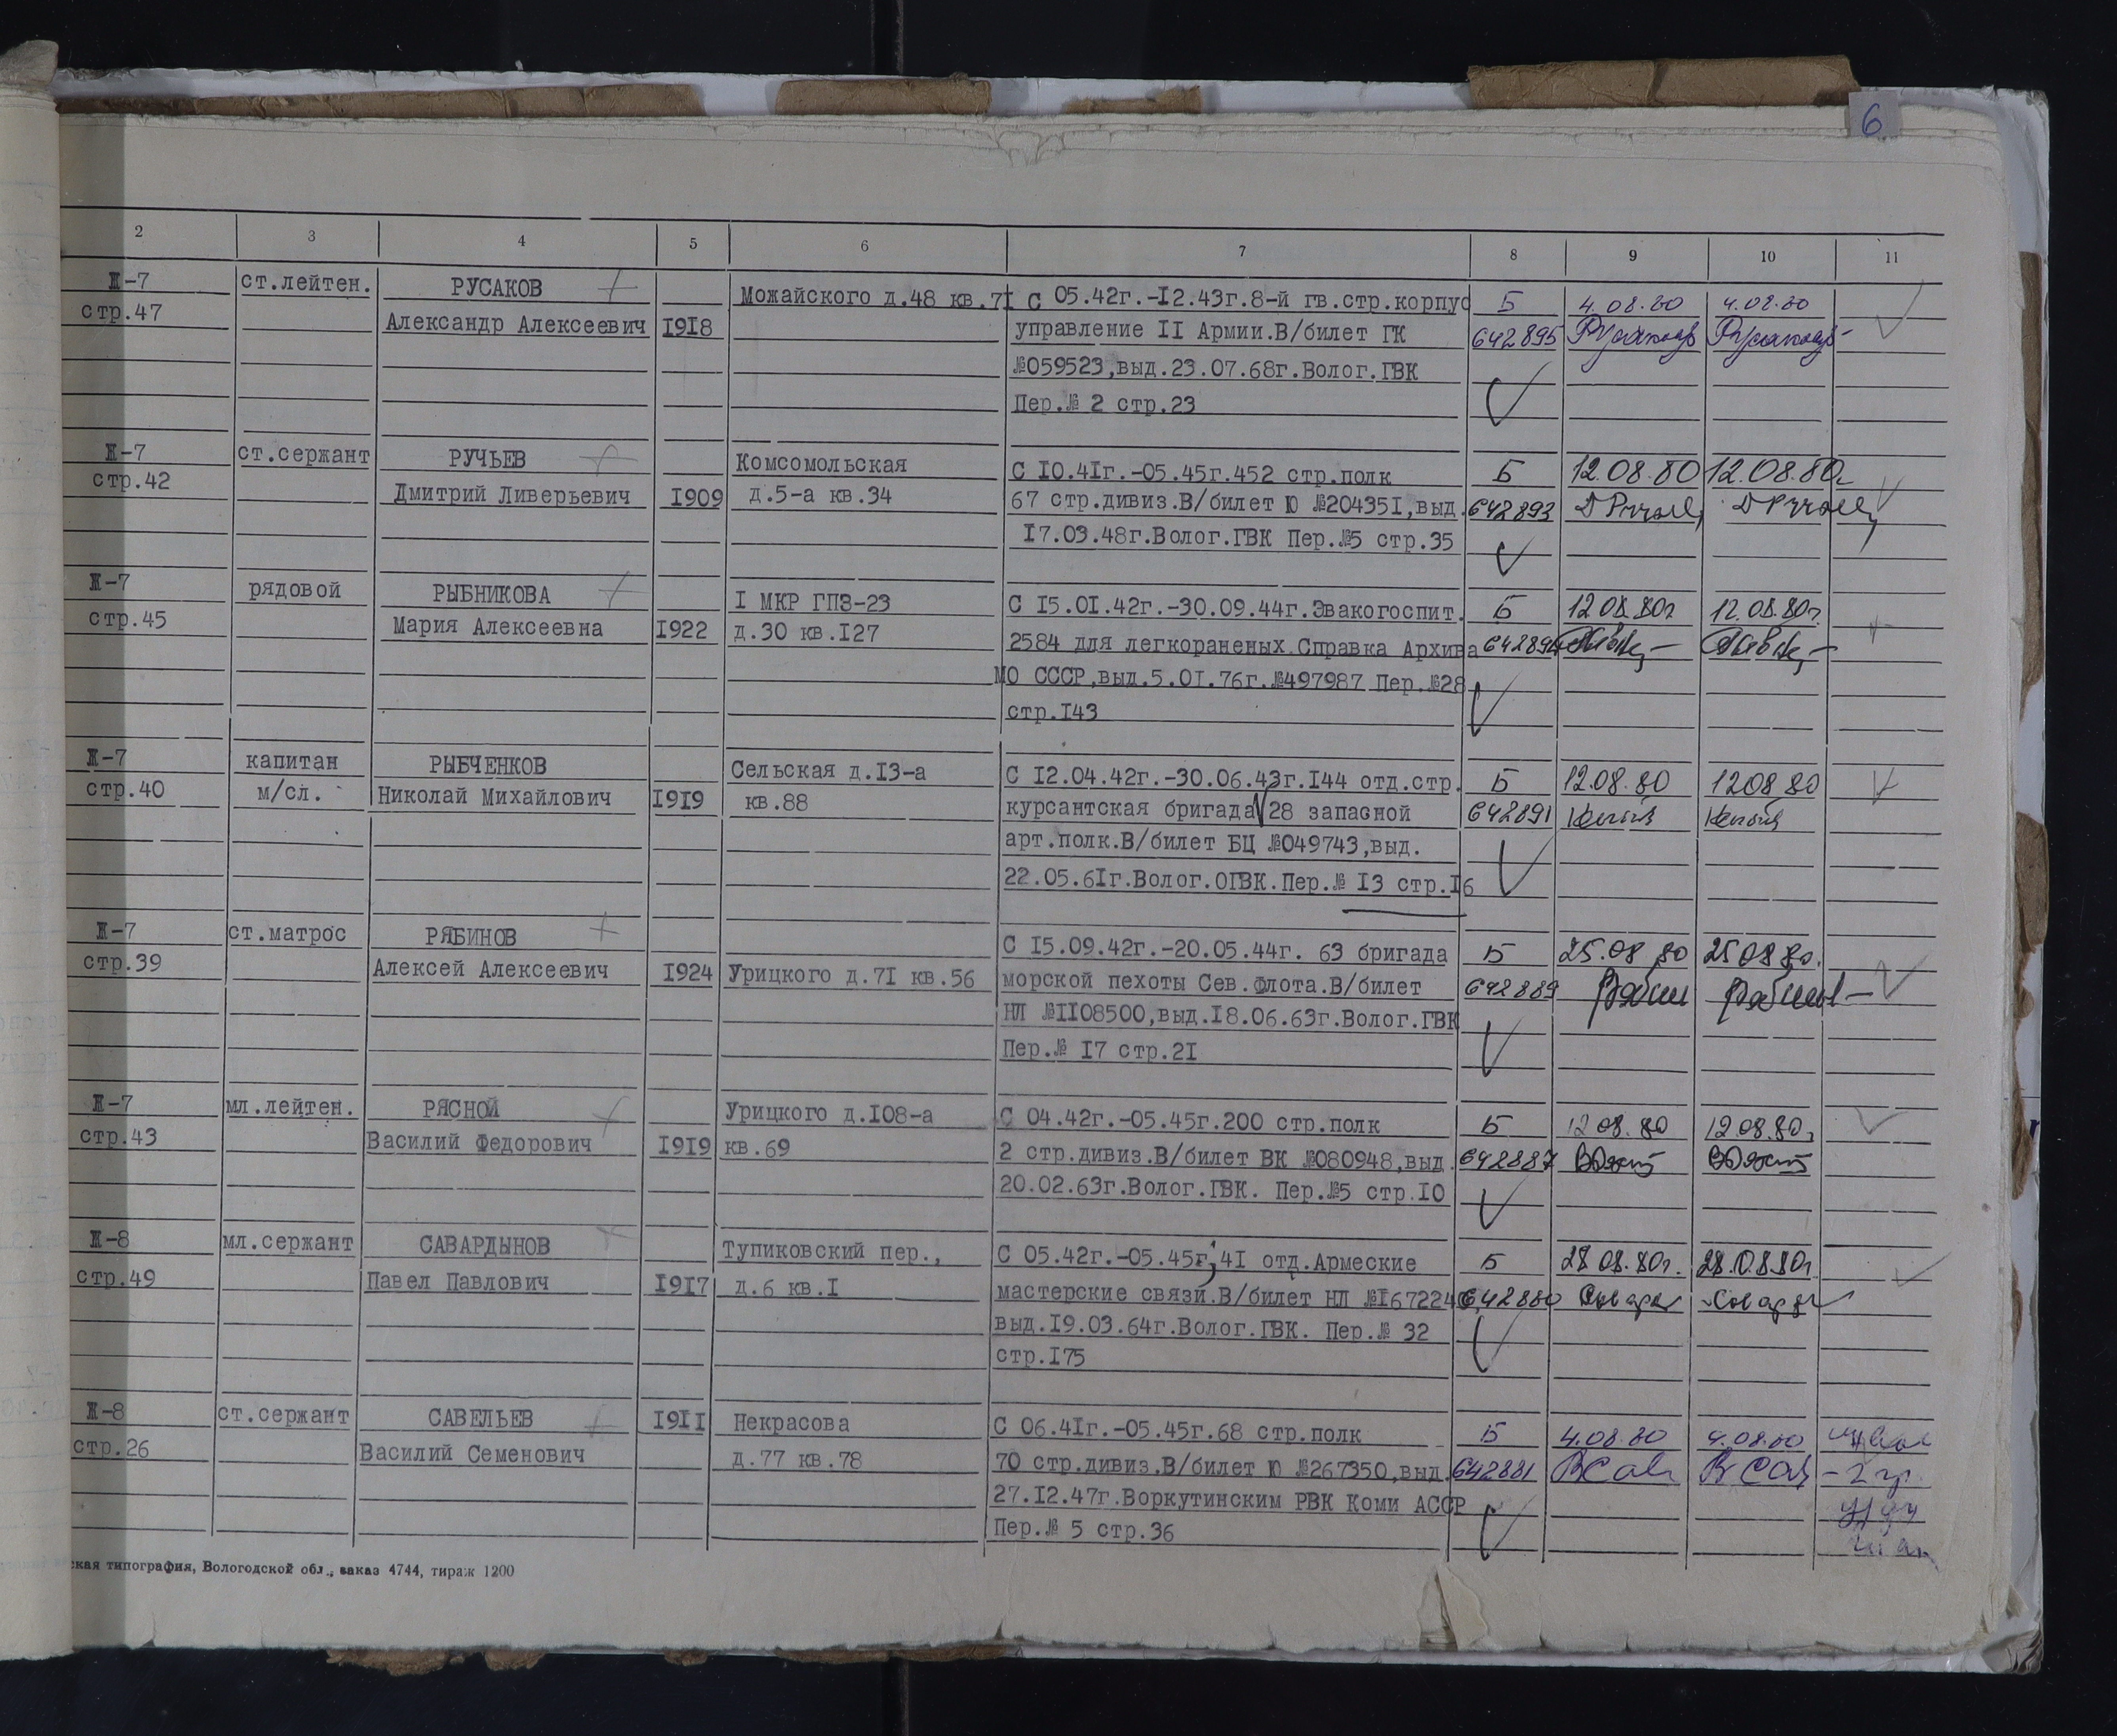 6
2 3 4 5 6 7 8 9 10 11
Ж-7 ст.лейтен. РУСАКОВ Можайского д.48 кв.7I С 05.42г.-I2.43г.8-й гв.стр.корпус Б 4.08.80 4.08.80
стр.47 Александр Алексеевич I9I8 управление II Армии.В/билет ГК 642895
№059523,выд.23.07.68г.Волог.ГВК
Пер.№ 2 стр.23
Ж-7 ст.сержант РУЧЬЕВ Комсомольская С I0.4Iг.-05.45г.452 стр.полк Б 12.08.80 12.08.80г
стр.42 Дмитрий Ливерьевич I909 д.5-а кв.34 67 стр.дивиз.В/билет Ю №20435I,выд. 642893
I7.03.48г.Волог.ГВК Пер.№5 стр.35
Ж-7 рядовой РЫБНИКОВА I МКР ГПЗ-23 С I5.0I.42г.-30.09.44г.Эвакогоспит. Б 12 08.80г 12.08.80г.
стр.45 Мария Алексеевна I922 д.30 кв.I27 2584 для легкораненых.Справка Архива 642894
МО СССР,выд.5.0I.76г.№497987 Пер.№28
стр.I43
Ж-7 капитан РЫБЧЕНКОВ Сельская д.I3-а С I2.04.42г.-30.06.43г.I44 отд.стр. Б 12.08.80 1208 80
стр.40 м/сл. Николай Михайлович I9I9 кв.88 курсантская бригада 28 запасной 642891
арт.полк.В/билет БЦ №049743,выд.
22.05.6Iг.Волог.ОГВК.Пер.№ I3 стр.I6
Ж-7 ст.матрос РЯБИНОВ С I5.09.42г.-20.05.44г. 63 бригада Б 25.08 80 25 08 80.
стр.39 Алексей Алексеевич I924 Урицкого д.7I кв.56 морской пехоты Сев.Флота.В/билет 642889
НЛ №II08500,выд.I8.06.63г.Волог.ГВК
Пер.№ I7 стр.2I
Ж-7 мл.лейтен. РЯСНОЙ Урицкого д.I08-а С 04.42г.-05.45г.200 стр.полк Б 12 08.80 12.08.80,
стр.43 Василий Федорович I9I9 кв.69 2 стр.дивиз.В/билет ВК №080948,выд. 642887
20.02.63г.Волог.ГВК. Пер.№5 стр.I0
Ж-8 мл.сержант САВАРДЫНОВ Тупиковский пер., С 05.42г.-05.45г,4I отд.Армеские Б 28 08.80г. 28.08.80г
стр.49 Павел Павлович I9I7 д.6 кв.I мастерские связи.В/билет НЛ №I67224 642880
выд.I9.03.64г.Волог.ГВК. Пер.№ 32
стр.I75
Ж-8 ст.сержант САВЕЛЬЕВ I9II Некрасова С 06.4Iг.-05.45г.68 стр.полк Б 4.08.80 4.08.80
стр.26 Василий Семенович д.77 кв.78 70 стр.дивиз.В/билет Ю №267350,выд. 642881
27.I2.47г.Воркутинским РВК Коми АССР
Пер.№ 5 стр.36
ская типография, Вологодской обл., заказ 4744, тираж 1200